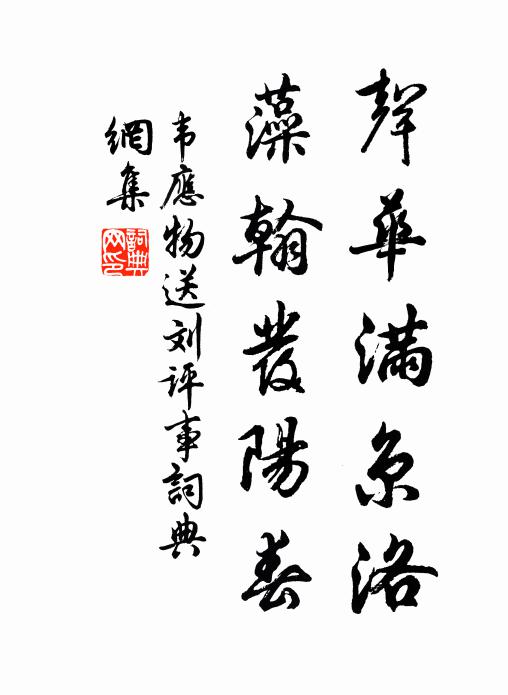 聲華滿京洛
藻翰發陽春
韦應物送刘评事詞典
網集
詞典網印